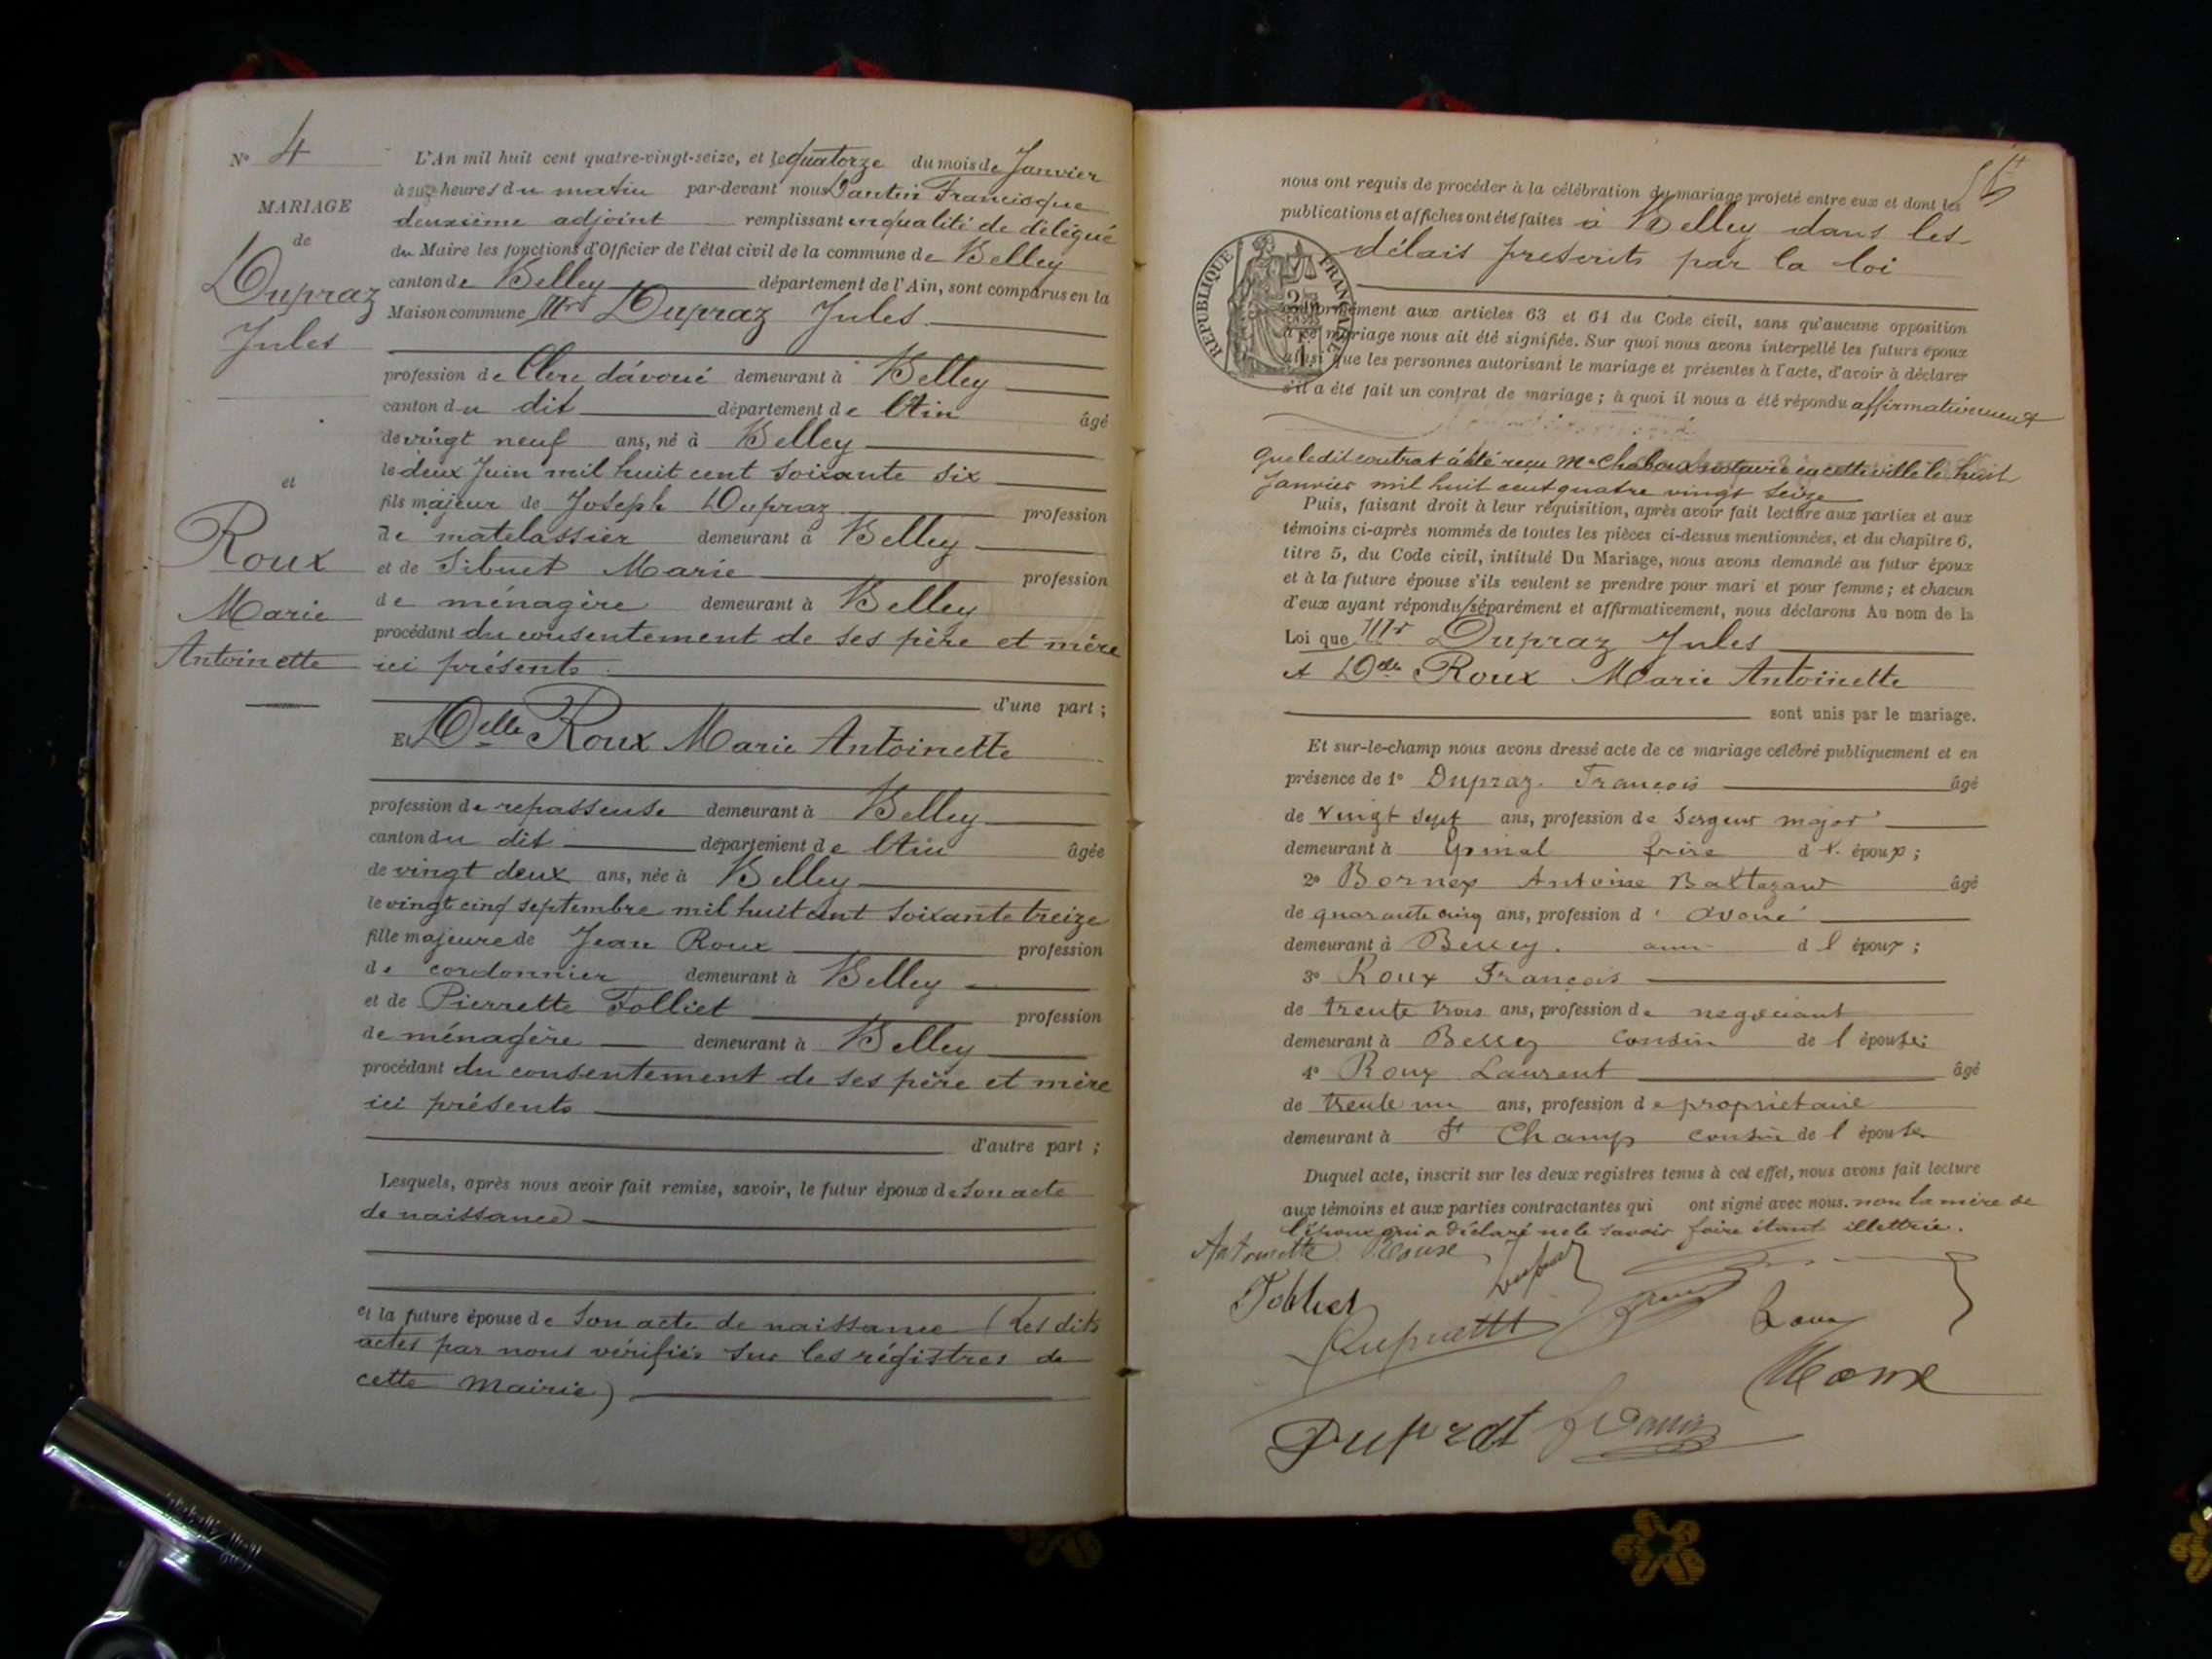 Nº 4
MARIAGE
de
Dupraz
Jules
et
Roux
Marie
Antoinette
L'An mil huit cent quatre-vingt-seize, et le quatorze du mois de Janvier
à heures du matin par-devant nous Dantin Francisque
deuxième adjoint remplissant en qualité de délégué
du Maire les fonctions d'Officier de l'état civil de la commune de Belley
canton de Belley département de l'Ain, sont comparus en la
Maison commune Mr Dupraz Jules
profession de Clerc d'avoué demeurant à Belley
canton du dit département de l'Ain âgé
de vingt neuf ans, né à Belley
le deux Juin mil huit cent soixante six
fils majeur de Joseph Dupraz profession
de matelassier demeurant à Belley
et de Sibuet Marie profession
de ménagère demeurant à Belley
procédant du consentement de ses père et mère
ici présents
d'une part ;
Et Delle Roux Marie Antoinette
profession de repasseuse demeurant à Belley
canton du dit département de l'Ain âgée
de vingt deux ans, née à Belley
le vingt cinq septembre mil huit cent soixante treize
fille majeure de Jean Roux profession
de cordonnier demeurant à Belley
et de Pierrette Folliet profession
de ménagère demeurant à Belley
procédant du consentement de ses père et mère
ici présents
d'autre part ;
Lesquels, après nous avoir fait remise, savoir, le futur époux de son acte
de naissance
et la future épouse de son acte de naissance (Les dits
actes par nous vérifiés sur les régistres de
cette Mairie)
nous ont requis de procéder à la célébration du mariage projeté entre eux et dont les
publications et affiches ont été faites à Belley dans les
délais prescrits par la loi
RÉPUBLIQUE FRANÇAISE
conformément aux articles 63 et 64 du Code civil, sans qu'aucune opposition
à ce mariage nous ait été signifiée. Sur quoi nous avons interpellé les futurs époux
ainsi que les personnes autorisant le mariage et présentes à l'acte, d'avoir à déclarer
s'il a été fait un contrat de mariage ; à quoi il nous a été répondu affirmativement
que ledit contrat a été reçu Me Chaboux notaire en cette ville le huit
Janvier mil huit cent quatre vingt seize
Puis, faisant droit à leur réquisition, après avoir fait lecture aux parties et aux
témoins ci-après nommés de toutes les pièces ci-dessus mentionnées, et du chapitre 6,
titre 5, du Code civil, intitulé Du Mariage, nous avons demandé au futur époux
et à la future épouse s'ils veulent se prendre pour mari et pour femme ; et chacun
d'eux ayant répondu séparément et affirmativement, nous déclarons Au nom de la
Loi que Mr Dupraz Jules
et Dlle Roux Marie Antoinette
sont unis par le mariage.
Et sur-le-champ nous avons dressé acte de ce mariage célébré publiquement et en
présence de 1º Dupraz François âgé
de vingt sept ans, profession de Sergent major
demeurant à Epinal frère de l'époux ;
2º Bornex Antoine Baltazard âgé
de quarante cinq ans, profession d'avoué
demeurant à Belley ami d l époux ;
3º Roux François
de trente trois ans, profession de négociant
demeurant à Belley cousin de l épouse ;
4º Roux Laurent âgé
de trente un ans, profession de propriétaire
demeurant à St Champ cousin de l épouse
Duquel acte, inscrit sur les deux registres tenus à cet effet, nous avons fait lecture
aux témoins et aux parties contractantes qui ont signé avec nous. non la mère de
l'époux qui a déclaré ne le savoir faire étant illettrée.
Antoinette Roux
Dupraz
Folliet
Roux
Roux
Duprat